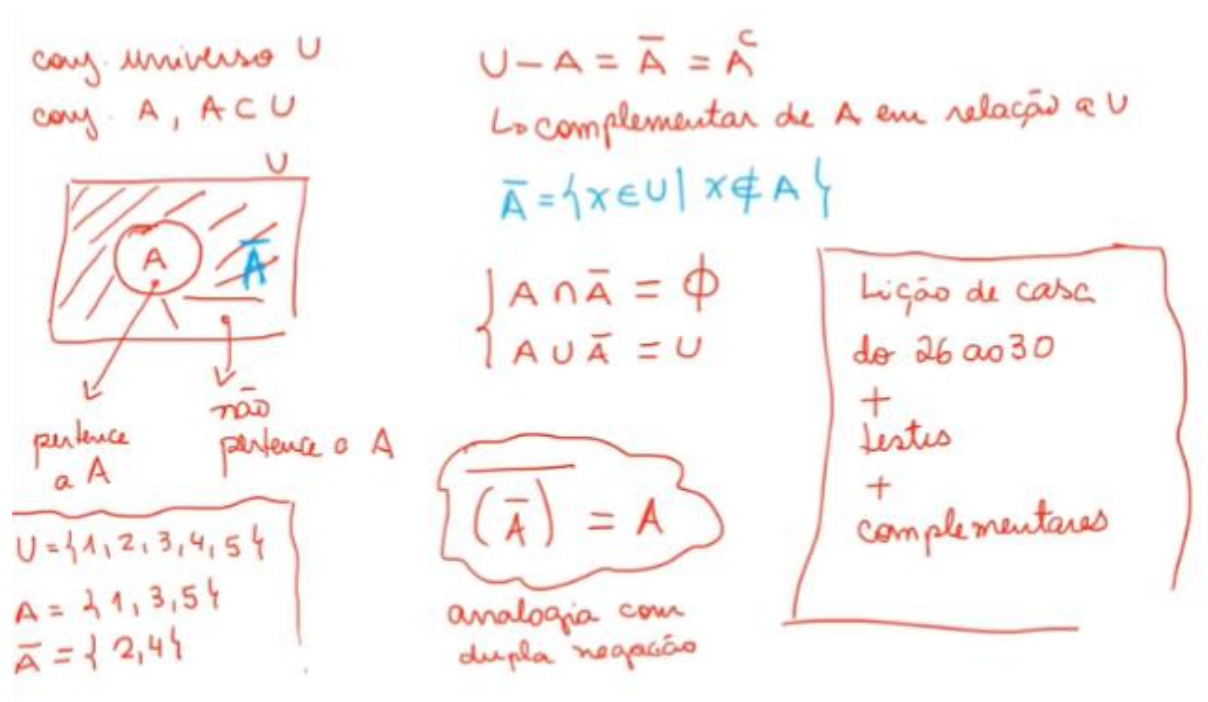 conj. universo U
conj. A, A ⊂ U
U
A
Ā
pertence
a A
não
pertence a A
U = {1, 2, 3, 4, 5}
A = {1, 3, 5}
Ā = {2, 4}
U - A = Ā = Aᶜ
↳ complementar de A em relação a U
Ā = {x ∈ U | x ∉ A}
A ∩ Ā = ϕ
A ∪ Ā = U
\overline{(Ā)} = A
analogia com
dupla negação
Lição de casa
do 26 ao 30
+
testes
+
complementares